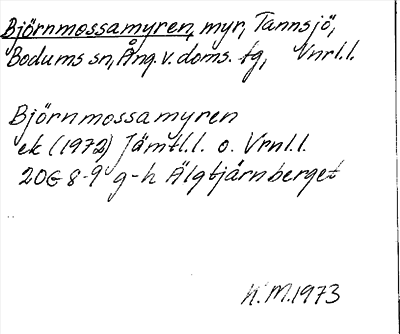 Björnmossamyren, myr, Tannsjö,
Bodums sn, Ång. v. doms. tg, Vnrl.l.
Björnmossamyren
ek (1972) Jämtl.l. o. Vrnl.l.
20G 8-9 g-h Älgtjärnberget
H.M. 1973